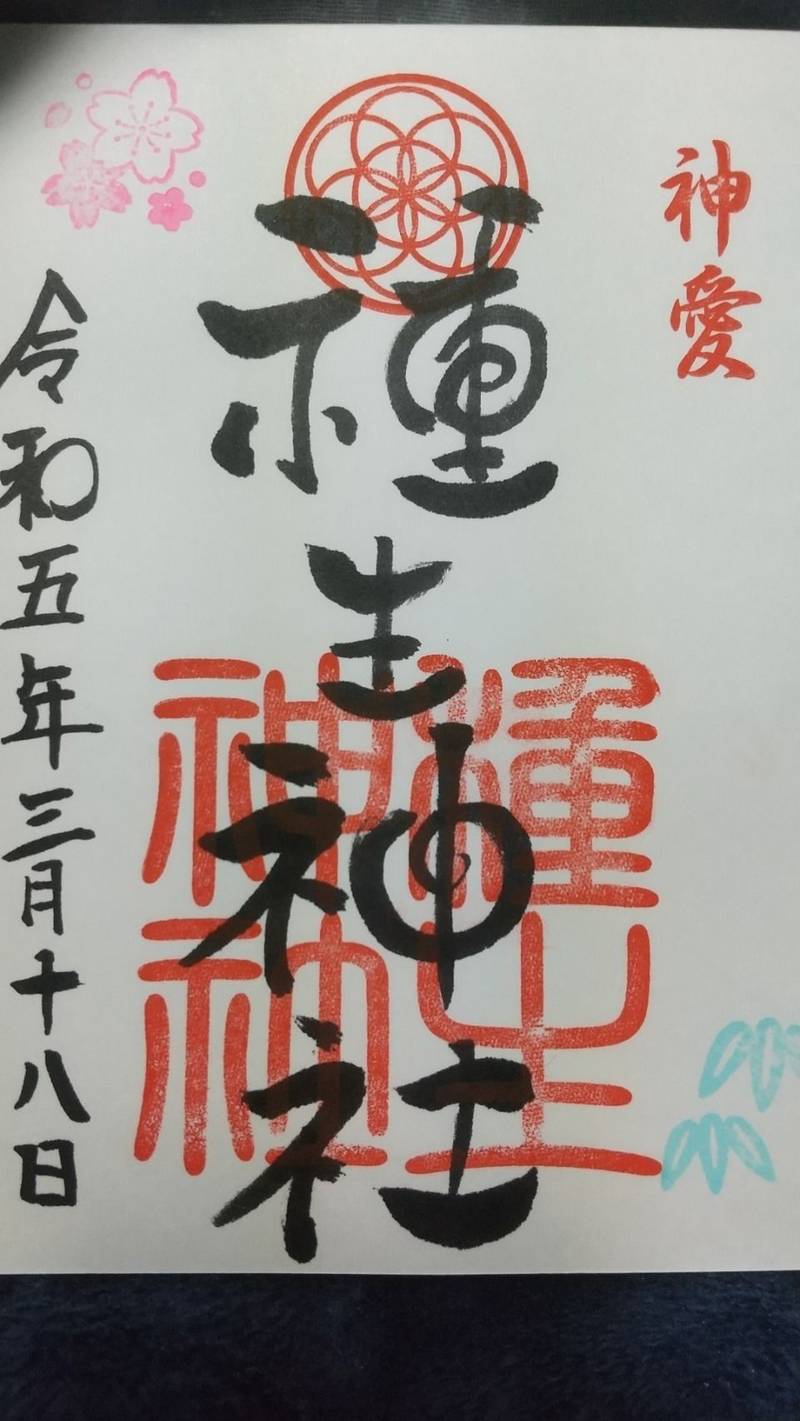 神愛
種生神社
種生
神社
令和五年三月十八日